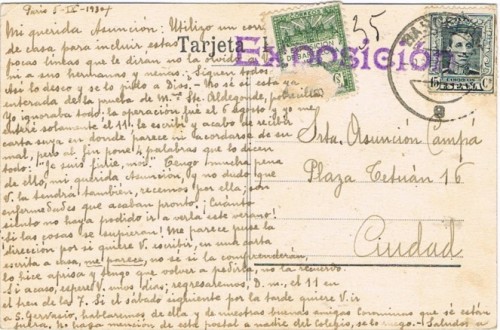 París 5-IX-1930
Mi querida Asunción: Utilizo un
de casa para incluir estas
pocas líneas que le diran no la olvido
ni a sus hermanas y nenas. Siguen todos
Así lo deseo y se lo pido a Dios. No sé si está ya
enterada de la prueba de Mª Ste. Aldegonde,
Yo ignoraba todo, la operación fué el 6 agosto y yo me
enteré solamente el 11. La escribí y acabo de recibir
carta suya en donde parece ni acordarse de su
mal, pero al fin pone 4 palabras que lo dicen
todo: Je suis Tengo mucha pena
de ello, mi querida Asunción, y no dudo que
V. la tendrá también, recemos por ella
enfermedades que acaban pronto. ¡Cuánto
siento no haya podido ir a verla este verano!
¡Si las cosas se supieran! Me parece puse la
dirección por si quiere V. escribir, en una carta
escrita a casa, me parece, no sé si la comprenderán,
lo hice aprisa y tengo que volver a pedirla, no la recuerdo.
Si acaso, espere V. unos dias; regresaremos, D. m., el 11 en
el tren de las 7. Si el sábado siguiente por la tarde quiere V. ir
a S. Gervacio, hablaremos, de ella y de nuestras buenas amigas
no haga mención de esta postal a nadie del colegio, se lo ruego. Saludos
Tarjeta
Exposición
35
Srta. Asunción Campa
Plaza Tetuán 16
Ciudad
9